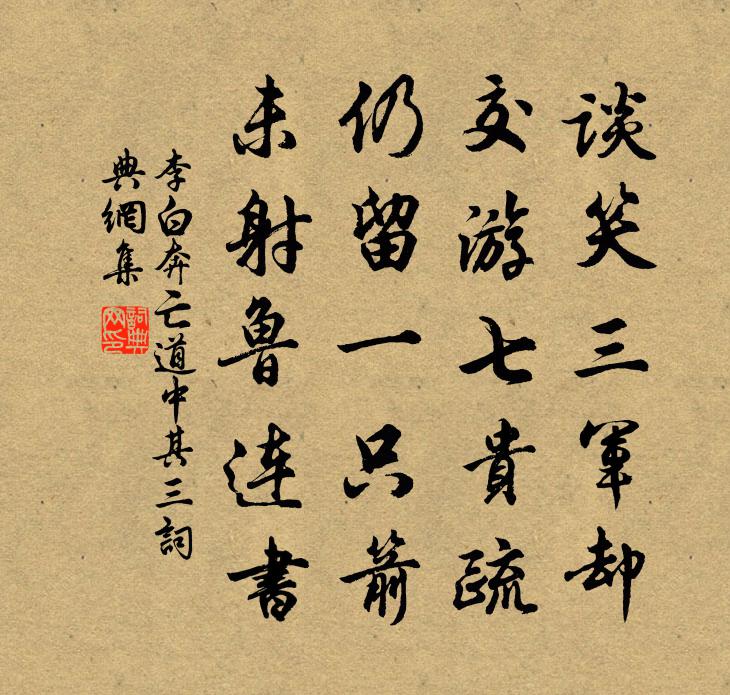 谈笑三軍却
交游七貴疏
仍留一只箭
未射魯連書
李白奔亡道中其三詞
典網集
詞典网印